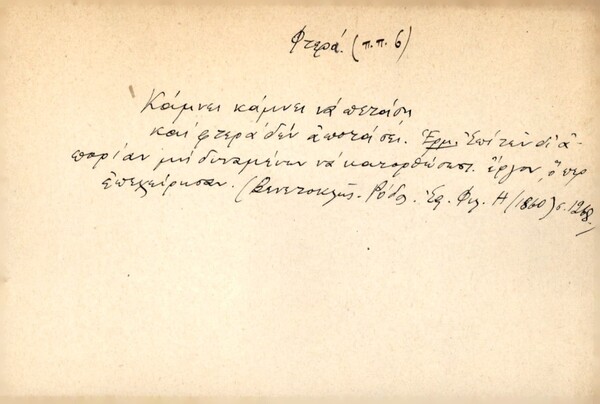 Φτερά. (π.π. 6)
Κάμνει κάμνει νά πετάση
καί φτερά δέν ἀποτάσει. Ἑρμ. Ἐπί τῶν δι' ἀ-
πορίαν μή δυναμένων νά κατορθώσωσι ἔργον, ὅπερ
ἐπεχείρησαν. (Βενετοκλῆς. Ρόδος. Ἐφ. Φιλ. Η (1860) σ. 1268.)